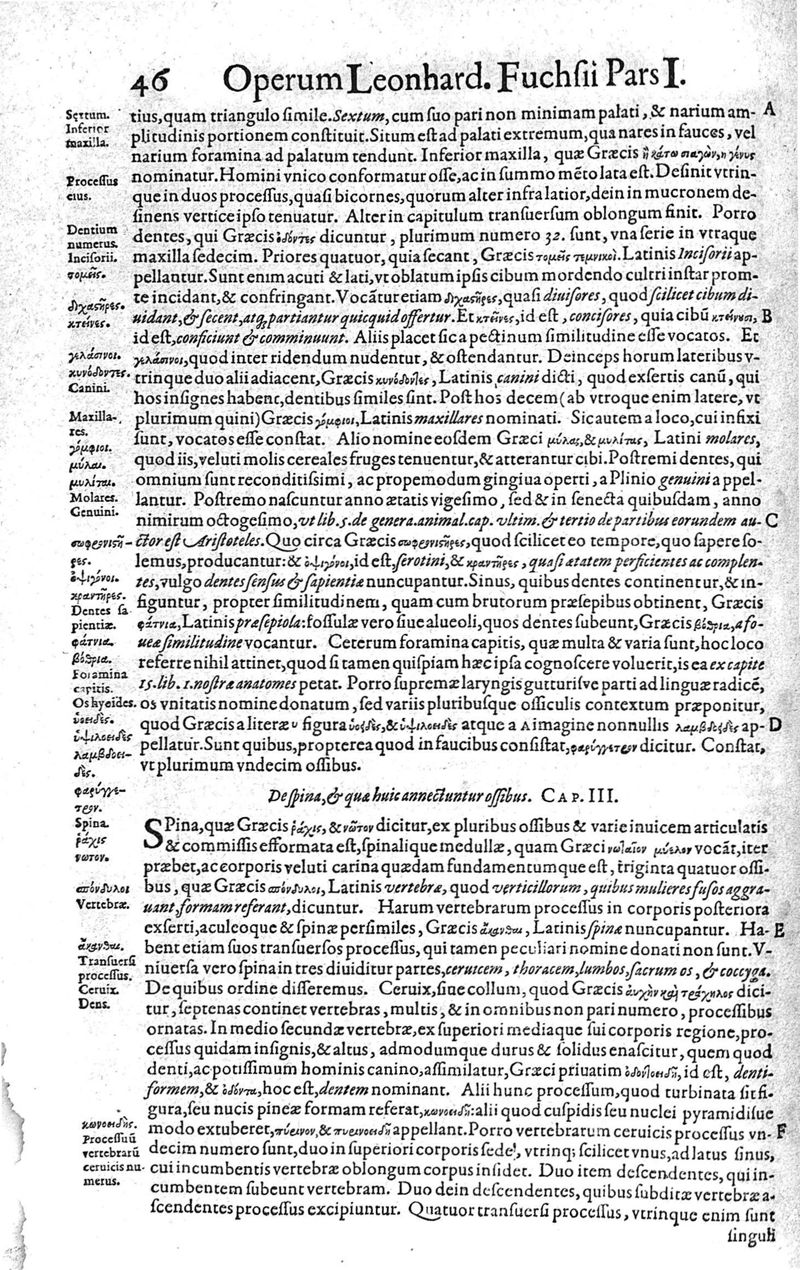 46 Operum Leonhard. Fuchsii Pars I.
tius, quam triangulo simile. Sextum, cum suo pari non minimam palati, & narium am- A
plitudinis portionem constituit. Situm est ad palati extremum, qua nares in fauces, vel
narium foramina ad palatum tendunt. Inferior maxilla, quæ Græcis ἡ κάτω σιαγὼν, ἢ γένυς
nominatur. Homini vnico conformatur osse, ac in summo mẽto lata est. Desinit vtrin-
que in duos processus, quasi bicornes, quorum alter infra latior, dein in mucronem de-
sinens vertice ipso tenuatur. Alter in capitulum transuersum oblongum finit. Porro
dentes, qui Græcis ὀδόντες dicuntur, plurimum numero 32. sunt, vna serie in vtraque
maxilla sedecim. Priores quatuor, quia secant, Græcis τομεῖς τεμνικοὶ. Latinis Incisorii ap-
pellantur. Sunt enim acuti & lati, vt oblatum ipsis cibum mordendo cultri instar prom-
te incidant, & confringant. Vocãtur etiam διχαστῆρες, quasi diuisores, quod scilicet cibum di-
uidant, & secent, atq; partiantur quicquid offertur. Et κτεῖνες, id est, concisores, quia cibũ κτείνουσι, B
id est, conficiunt & comminuunt. Aliis placet sic a pectinum similitudine esse vocatos. Et
γελάσινοι, quod inter ridendum nudentur, & ostendantur. Deinceps horum lateribus v-
trinque duo alii adiacent, Græcis κυνόδοντες, Latinis canini dicti, quod exsertis canũ, qui
hos insignes habent, dentibus similes sint. Post hos decem (ab vtroque enim latere, vt
plurimum quini) Græcis γόμφιοι, Latinis maxillares nominati. Sic autem a loco, cui infixi
sunt, vocatos esse constat. Alio nomine eosdem Græci μύλας, & μυλίτας, Latini molares,
quod iis, veluti molis cereales fruges tenuentur, & atterantur cibi. Postremi dentes, qui
omnium sunt reconditissimi, ac propemodum gingiua operti, a Plinio genuini appel-
lantur. Postremo nascuntur anno ætatis vigesimo, sed & in senecta quibusdam, anno
nimirum octogesimo, vt lib. 5. de genera. animal. cap. vltim. & tertio de partibus eorundem au- C
ctor est Aristoteles. Quo circa Græcis σωφρονιστῆρες, quod scilicet eo tempore, quo sapere so-
lemus, producantur: & ὀψιγόνοι, id est, serotini, & κραντῆρες, quasi ætatem perficientes ac complen-
tes, vulgo dentes sensus & sapientiæ nuncupantur. Sinus, quibus dentes continentur, & in-
figuntur, propter similitudinem, quam cum brutorum præsepibus obtinent, Græcis
φάτνια, Latinis præsepiola: fossulæ vero siue alueoli, quos dentes subeunt, Græcis βόθρια, a fo-
ueæ similitudine vocantur. Ceterum foramina capitis, quæ multa & varia sunt, hoc loco
referre nihil attinet, quod si tamen quispiam hæc ipsa cognoscere voluerit, is ea ex capite
15. lib. 1. nostræ anatomes petat. Porro supremæ laryngis gutturisve parti ad linguæ radicẽ,
os vnitatis nomine donatum, sed variis pluribusque officulis contextum præponitur,
quod Græcis a literæ υ figura ὑοειδὲς, & ὑψιλοειδὲς atque a Λ imagine nonnullis λαμβδοειδὲς ap- D
pellatur. Sunt quibus, propterea quod in faucibus consistat, φαρύγγετρον dicitur. Constat,
vt plurimum vndecim ossibus.
De spina, & quæ huic annectuntur ossibus. CAP. III.
SPina, quæ Græcis ῥάχις, & νῶτον dicitur, ex pluribus ossibus & varie inuicem articulatis
& commissis efformata est, spinalique medullæ, quam Græci νωτιαῖον μύελον vocãt, iter
præbet, ac corporis veluti carina quædam fundamentumque est, triginta quatuor ossi-
bus, quæ Græcis σπόνδυλοι, Latinis vertebræ, quod verticillorum, quibus mulieres fusos aggra-
uant, formam referant, dicuntur. Harum vertebrarum processus in corporis posteriora
exserti, aculeoque & spinæ persimiles, Græcis ἄκανθαι, Latinis spinæ nuncupantur. Ha- E
bent etiam suos transuersos processus, qui tamen peculiari nomine donati non sunt. V-
niuersa vero spina in tres diuiditur partes, ceruicem, thoracem, lumbos, sacrum os, & coccyga.
De quibus ordine disseremus. Ceruix, siue collum, quod Græcis αὐχὴν καὶ τράχηλος dici-
tur, septenas continet vertebras, multis, & in omnibus non pari numero, processibus
ornatas. In medio secundæ vertebræ, ex superiori mediaque sui corporis regione, pro-
cessus quidam insignis, & altus, admodumque durus & solidus enascitur, quem quod
denti, ac potissimum hominis canino, assimilatur, Græci priuatim ὀδοντοειδῆ, id est, denti-
formem, & ὀδόντα, hoc est, dentem nominant. Alii hunc processum, quod turbinata sit fi-
gura, seu nucis pineæ formam referat, κωνοειδῆ: alii quod cuspidis seu nuclei pyramidisue
modo extuberet, πύρινον, & πυρινοειδῆ appellant. Porro vertebrarum ceruicis processus vn- F
decim numero sunt, duo in superiori corporis sede, vtrinq; scilicet vnus, ad latus sinus,
cui incumbentis vertebræ oblongum corpus insidet. Duo item descendentes, qui in-
cumbentem subeunt vertebram. Duo dein descendentes, quibus subditæ vertebræ a-
scendentes processus excipiuntur. Quatuor transuersi processus, vtrinque enim sunt
singuli
Sextum.
Inferior
maxilla.
Processus
eius.
Dentium
numerus.
Incisorii.
τομεῖς.
διχαστῆρες.
κτεῖνες.
γελάσινοι.
κυνόδοντες.
Canini.
Maxilla-
res.
γόμφιοι.
μύλαι.
μυλίται.
Molares.
Genuini.
σωφρονιστῆ-
ρες.
ὀψιγόνοι.
κραντῆρες.
Dentes sa
pientiæ.
φάτνια.
βόθρια.
Foramina
capitis.
Os hyoides.
ὑοειδὲς.
ὑψιλοειδὲς
λαμβδοει-
δὲς.
φαρύγγε-
τρον.
Spina.
ῥάχις
νῶτον.
σπόνδυλοι
Vertebræ.
ἄκανθαι.
Transuersi
processus.
Ceruix.
Dens.
κωνοειδής.
Processuũ
vertebrarũ
ceruicis nu-
merus.